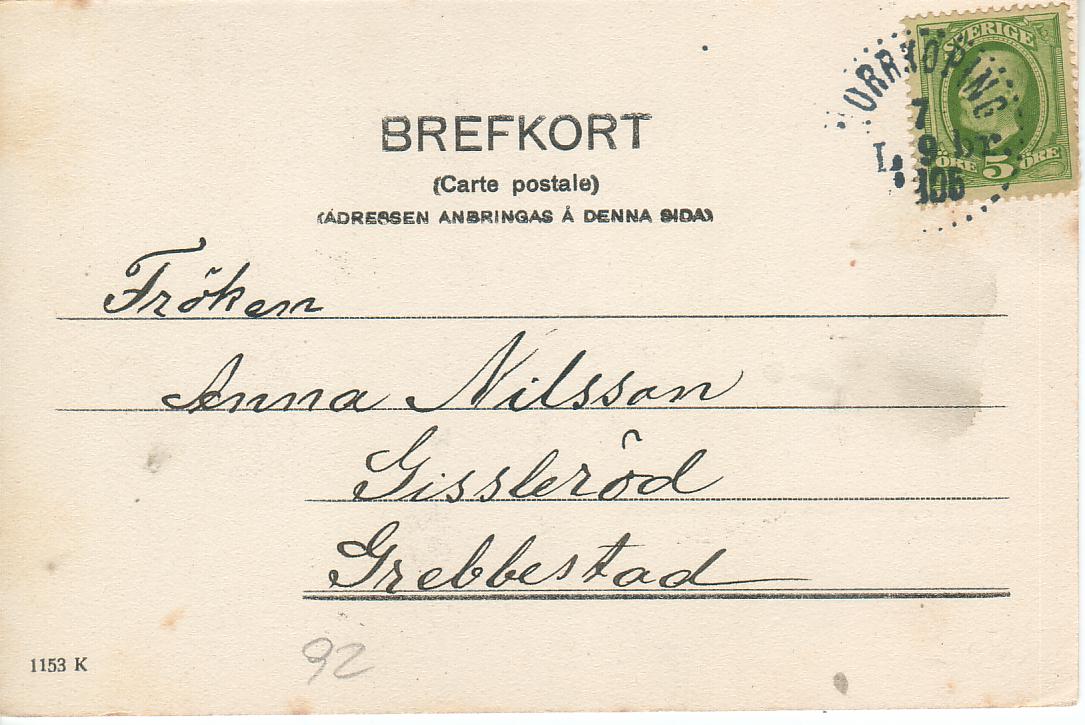 SVERIGE
ORRKÖPING
7
9
ÖRE 5 ÖRE
BREFKORT
(Carte postale)
(ADRESSEN ANBRINGAS Å DENNA SIDA)
Fröken
Anna Nilsson
Gissleröd
Grebbestad
1153 K
92